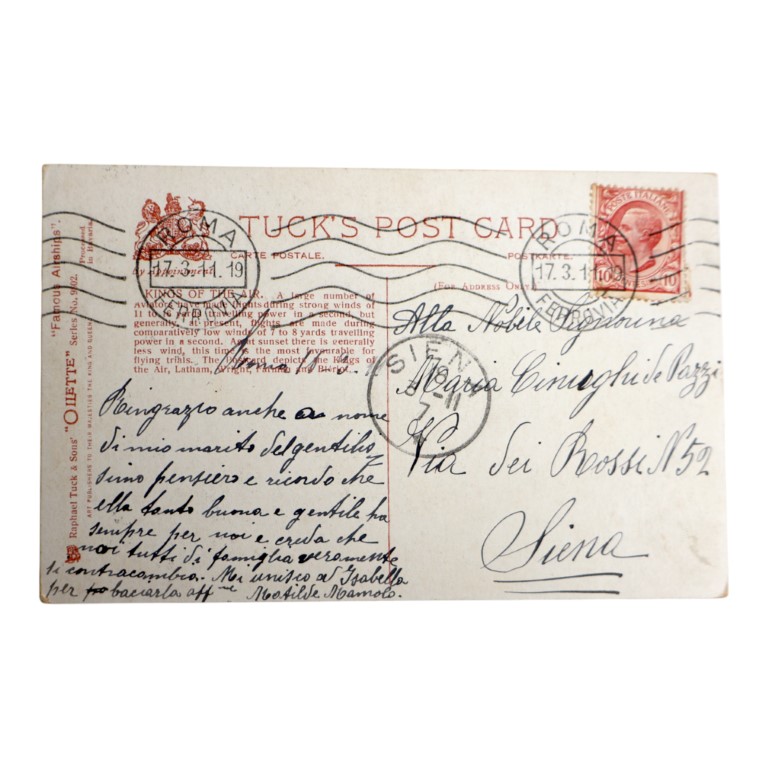 TUCK'S POST CARD
CARTE POSTALE.
POSTKARTE.
by Appointment
(FOR ADDRESS ONLY)
POSTE ITALIANE
10
ROMA
17.3.11.19
FERROVIA
ROMA
17.3.11
FERROVIA
SIENA
18
3-11
7
KINGS OF THE AIR. A large number of
Aviators have made flights during strong winds of
11 to travelling power in a second, but
generally, at present, flights are made during
comparatively low winds of 7 to 8 yards travelling
power in a second. About sunset there is generally
less wind, this time is the most favourable for
flying trials. The Postcard depicts the Kings of
the Air, Latham, Wright, Farman and Blériot.
Roma
Ringrazio anche a nome
di mio marito del gentilis
simo pensiero e ricordo che
ella tanto buona e gentile ha
sempre per noi e creda che
noi tutti di famiglia veramente
si contracambia. Mi unisco ad Isabella
per baciarla aff.me Matilde Mamolo.
Alla Nobile Signorina
Maria Cinughi de Pazzi
Via dei Rossi N 52
Siena
"Famous Airships".
Processed in Bavaria.
Raphael Tuck & Sons' "OILETTE" Series No. 9
ART PUBLISHERS TO THEIR MAJESTIES THE KING AND QUEEN.